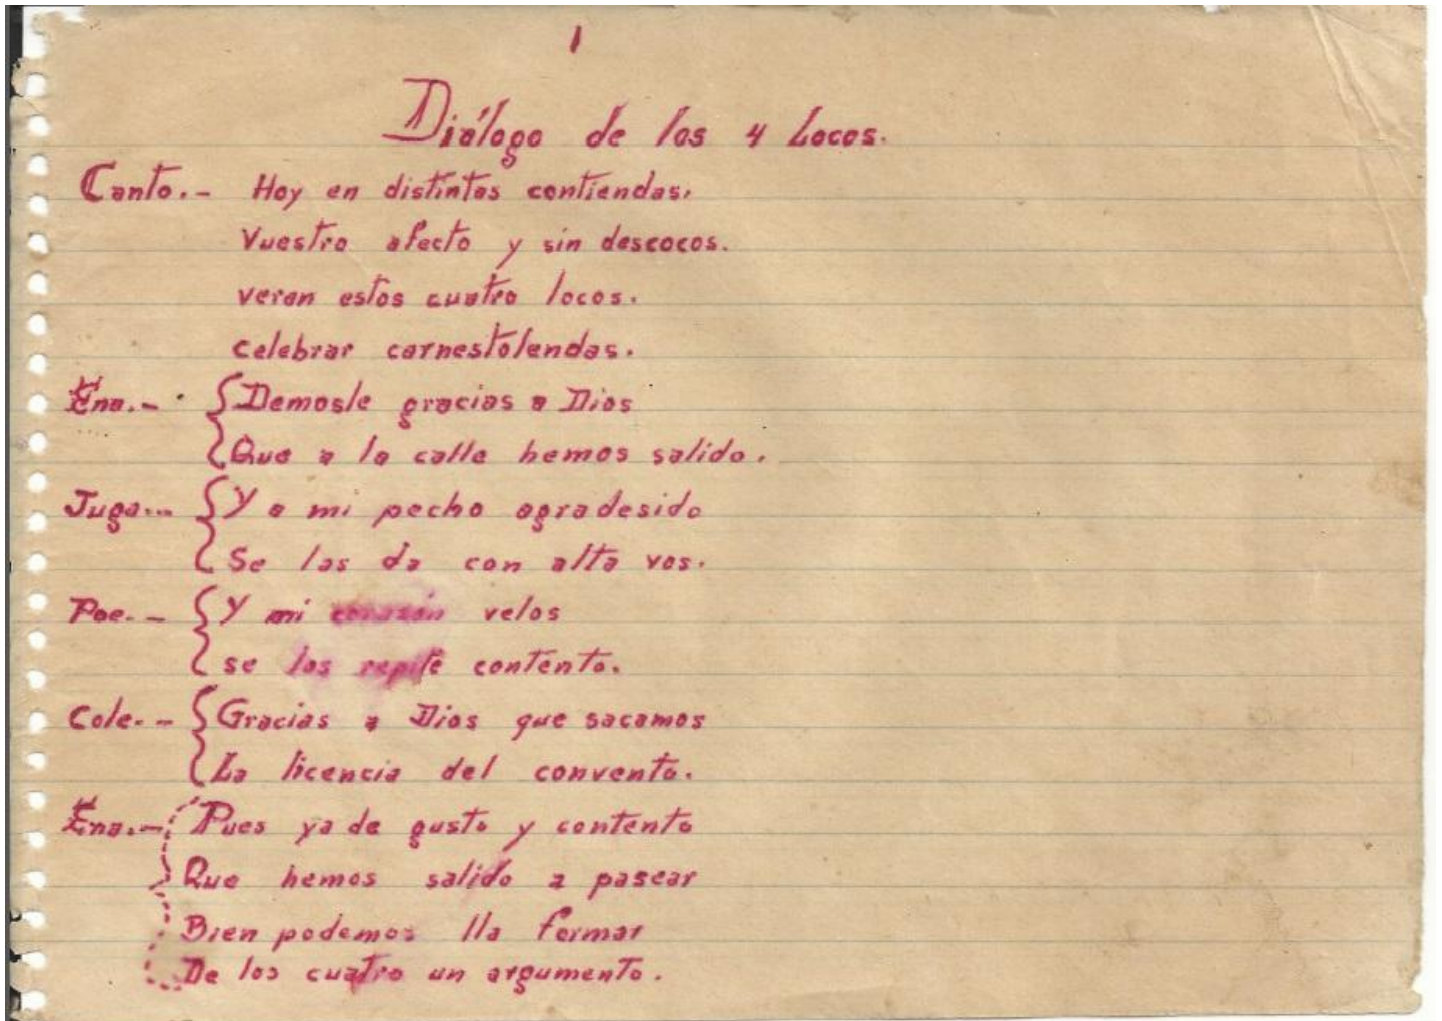 1
Diálogo de los 4 Locos.
Canto.- Hoy en distintas contiendas,
Vuestro afecto y sin descocos.
veran estos cuatro locos.
celebrar carnestolendas.
Ena.- Demosle gracias a Dios
Que a la calle hemos salido.
Juga.- Y a mi pecho agradesido
Se las da con alta vos.
Poe.- Y mi corazón velos
se las repite contento.
Cole.- Gracias a Dios que sacamos
La licencia del convento.
Ena.- Pues ya de gusto y contento
Que hemos salido a pasear
Bien podemos lla formar
De los cuatro un argumento.